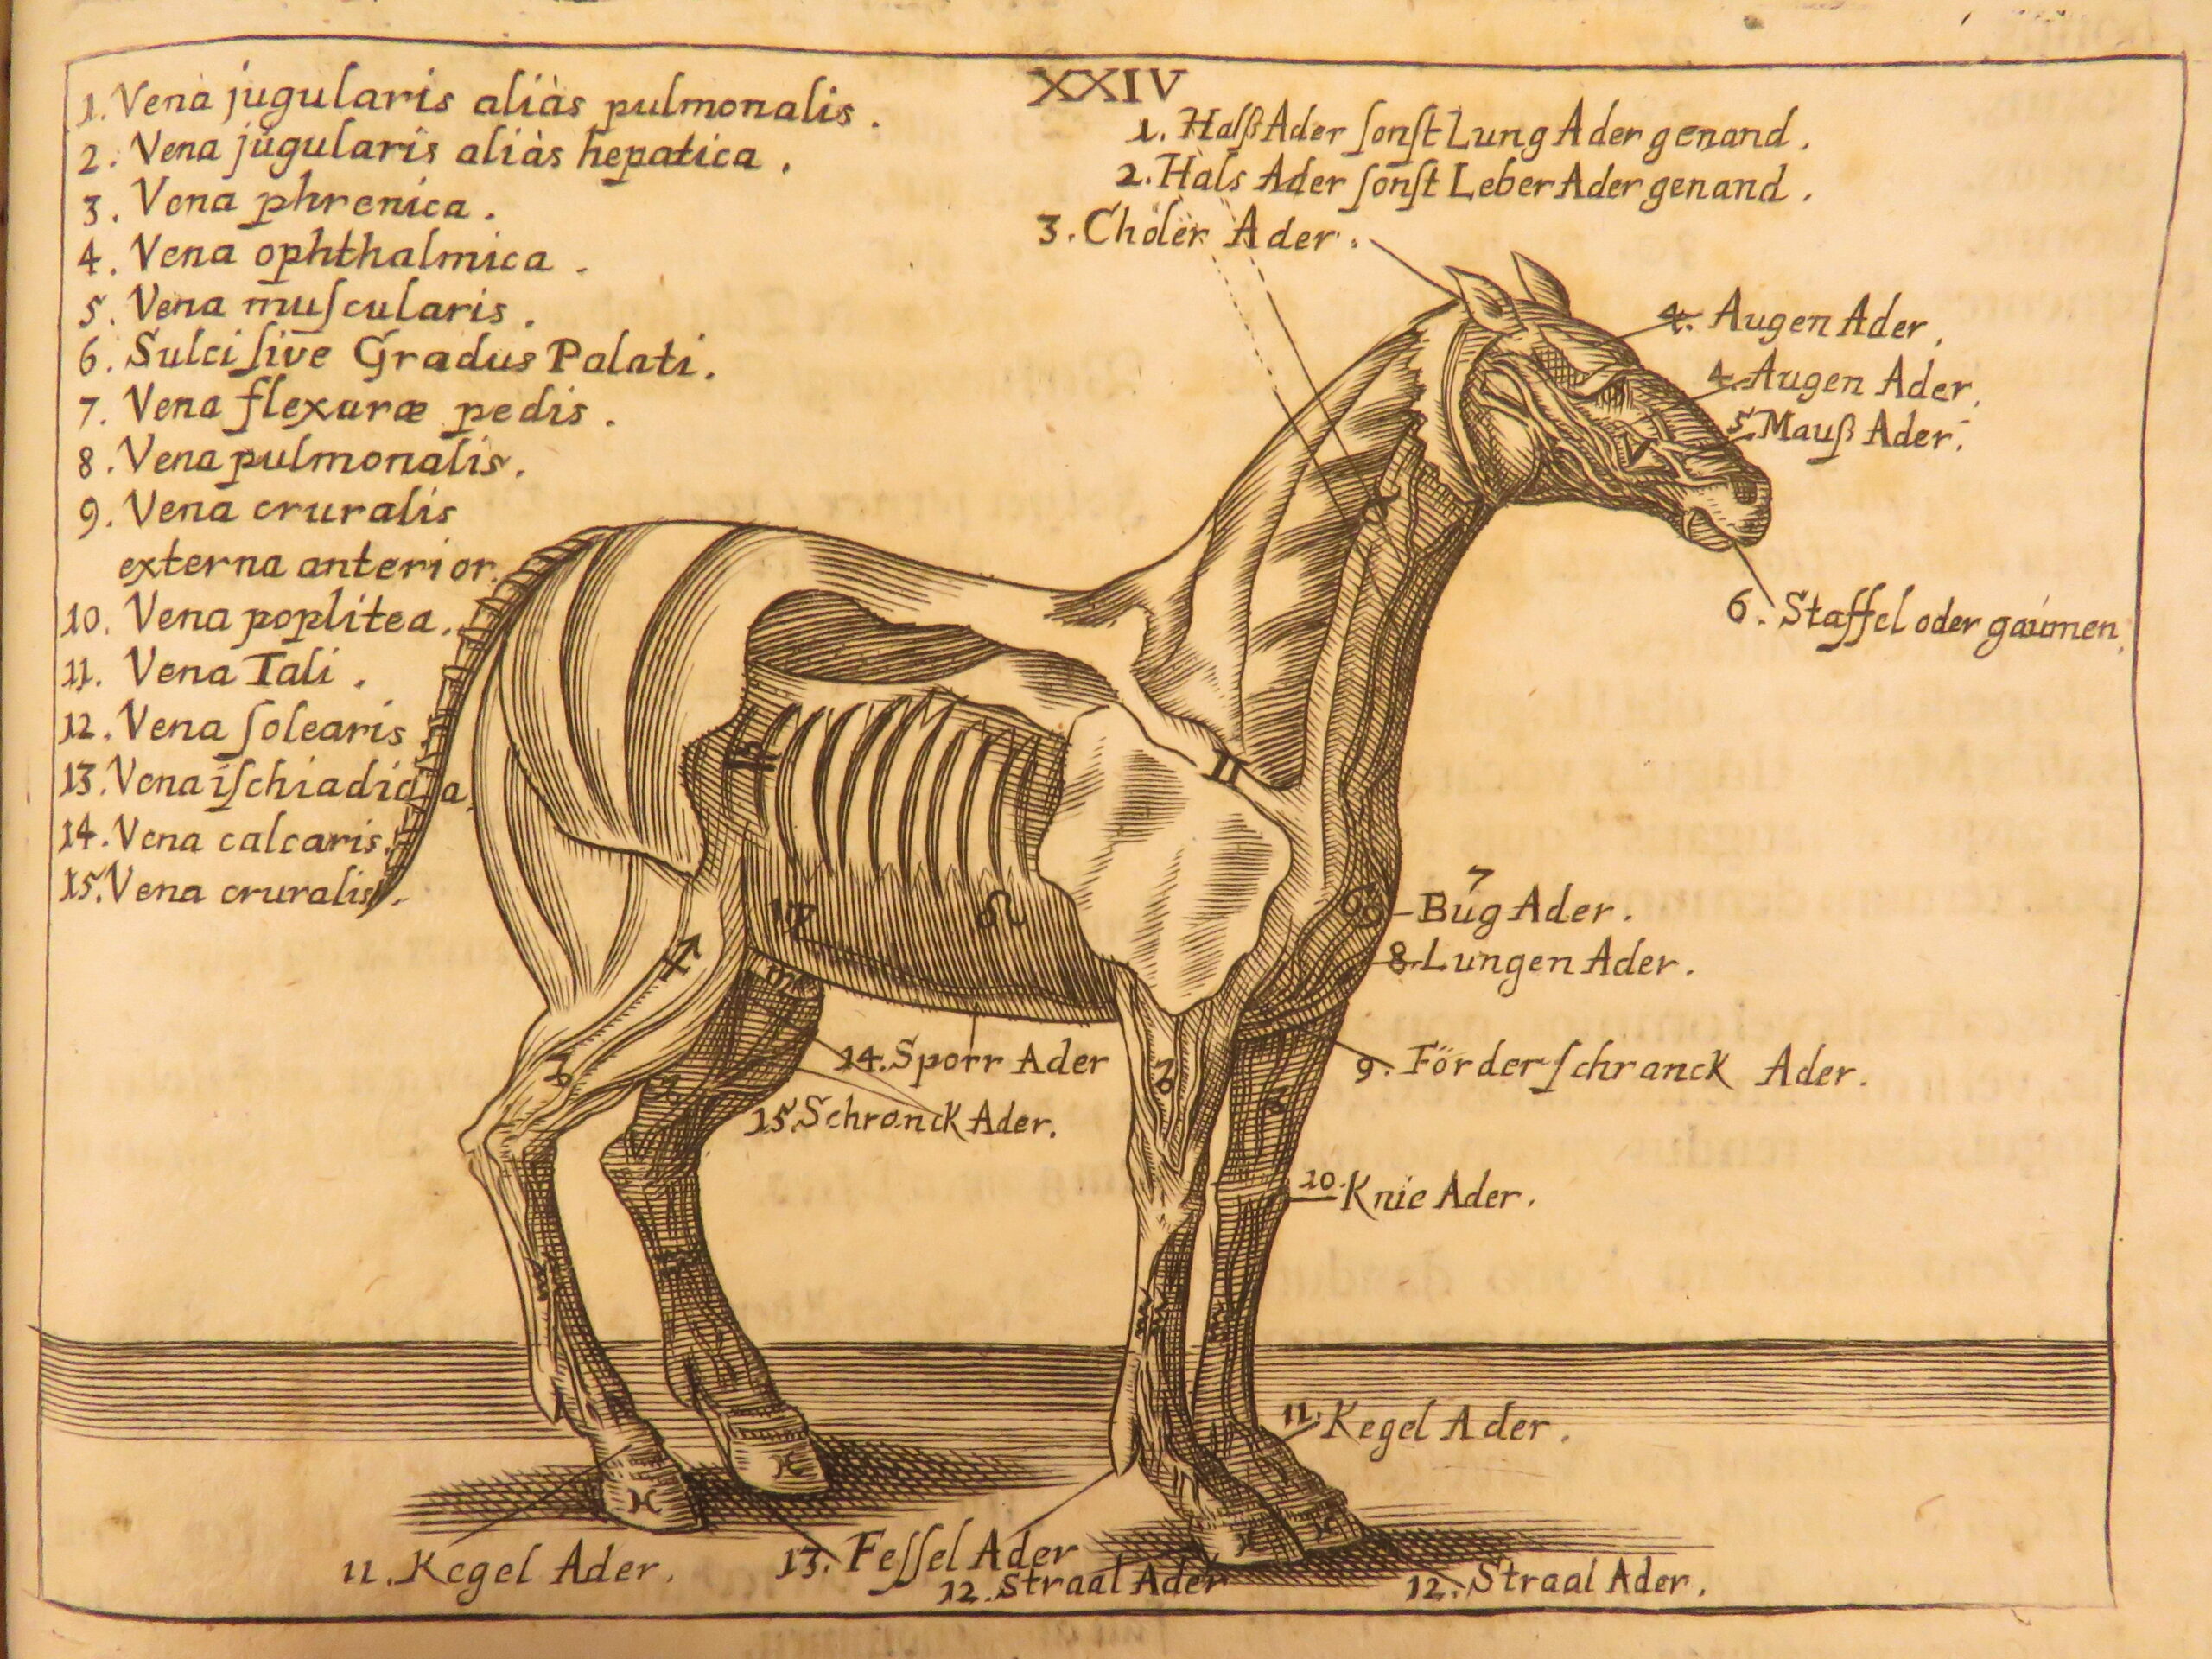 XXIV
1. Vena jugularis aliàs pulmonalis.
2. Vena jugularis aliàs hepatica.
3. Vena phrenica.
4. Vena ophthalmica.
5. Vena muſcularis.
6. Sulci ſive Gradus Palati.
7. Vena flexuræ pedis.
8. Vena pulmonalis.
9. Vena cruralis
externa anterior.
10. Vena poplitea.
11. Vena Tali.
12. Vena ſolearis
13. Vena iſchiadica
14. Vena calcaris.
15. Vena cruralis.
1. Halß Ader ſonſt Lung Ader genand.
2. Hals Ader ſonſt Leber Ader genand.
3. Choler Ader.
4. Augen Ader,
4. Augen Ader,
5. Mauß Ader.
6. Staffel oder gaumen,
7 Bug Ader.
8. Lungen Ader.
9. Förder ſchranck Ader.
14. Sporr Ader
15. Schranck Ader.
10. Knie Ader.
11. Kegel Ader.
11. Kegel Ader.
13. Feſſel Ader
12. Straal Ader
12. Straal Ader.
♊
♎
♍
♌
♋
♐
♏
♑
♑
♑
♑
♒
♒
♒
♒
♓
♓
♓
♓